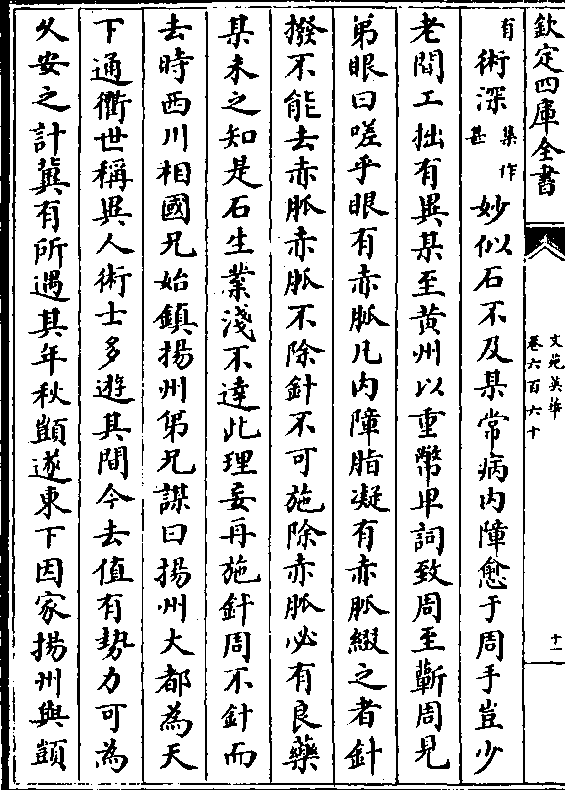 欽定四庫全書
文苑英華
卷六百六十
十一
有術深集作甚妙似石不及某常病内障愈于周手豈少
老間工拙有異某至黄州以重幣卑詞致周至蘄周見
弟眼曰嗟乎眼有赤脈凡内障脂凝有赤脈綴之者針
撥不能去赤脈赤脈不除針不可施除赤脈必有良藥
某未之知是石生業淺不達此理妄再施針周不針而
去時西川相國兄始鎮揚州弟兄謀曰揚州大都為天
下通衢世稱異人術士多遊其間今去值有勢力可為
久安之計冀有所遇其年秋顗遂東下因家揚州與顗